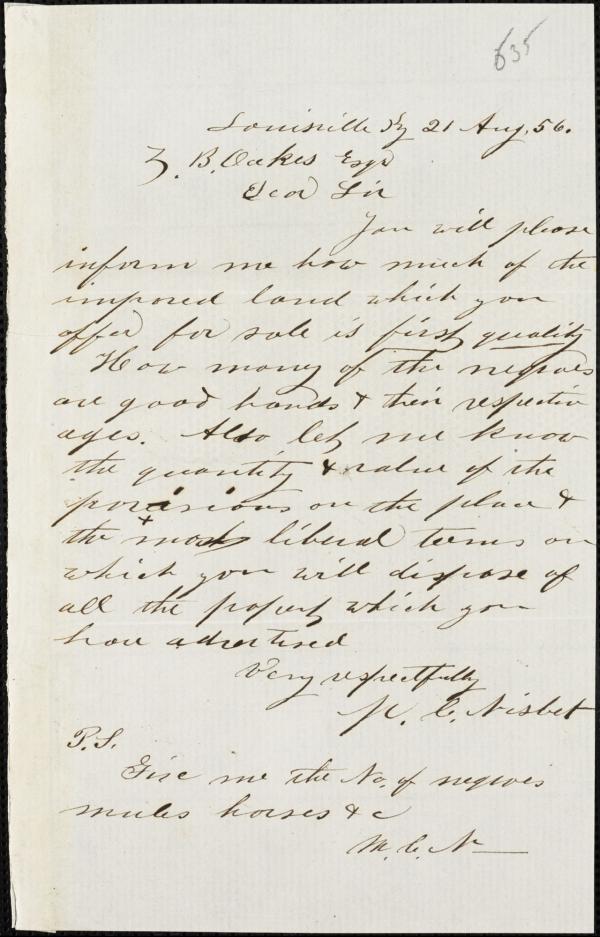 635
Louisville Ky 21 Aug. 56.
Z. B. Oakes Esqr
Dear Sir
You will please
inform me how much of the
improved land which you
offer for sale is first quality
How many of the negroes
are good hands & their respective
ages. Also let me know
the quantity & value of the
provisions on the place &
the most liberal terms on
which you will dispose of
all the property which you
have advertised
Very respectfully
M. C. Nisbet
P.S.
Give me the No. of negroes
mules horses &c
M. C. N